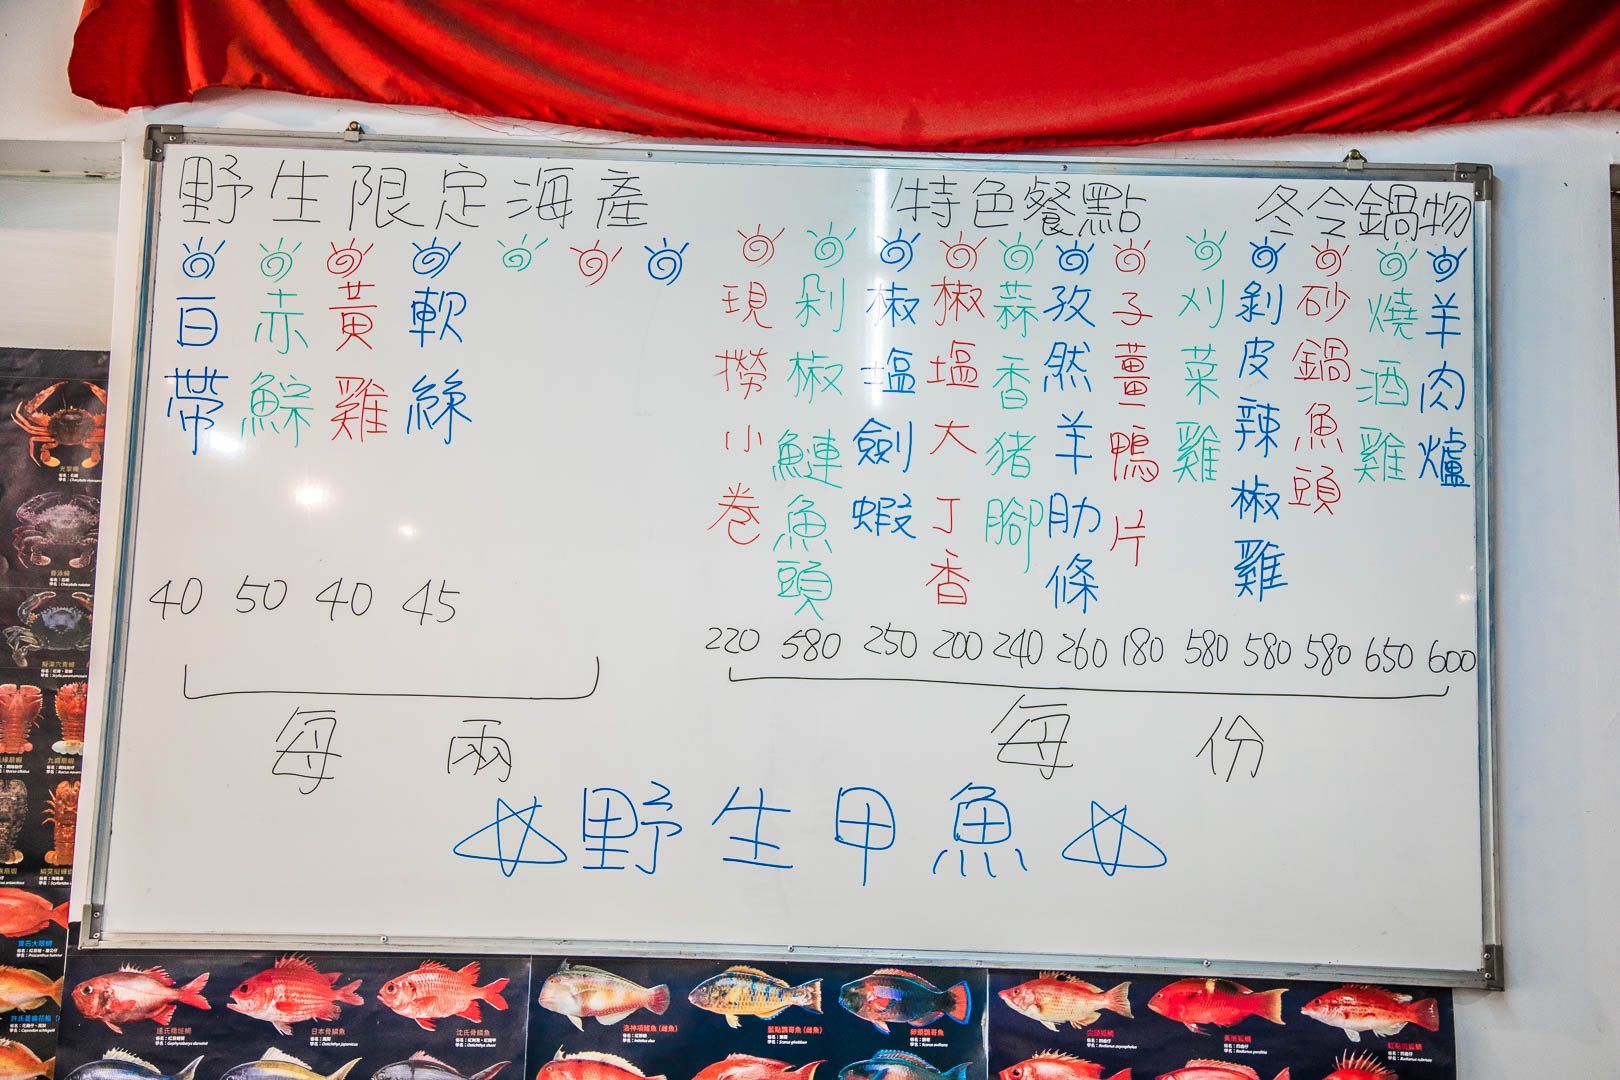 野生限定海產
特色餐點
冬令鍋物
白帶
赤鯮
黃雞
軟絲
40 50 40 45
每兩
現撈小卷
剁椒鰱魚頭
椒塩劍蝦
椒塩大丁香
蒜香豬腳
孜然羊肋條
子薑鴨片
刈菜雞
剝皮辣椒雞
砂鍋魚頭
燒酒雞
羊肉爐
220 580 250 200 240 260 180 580 580 580 650 600
每份
野生甲魚
日本骨鱗魚